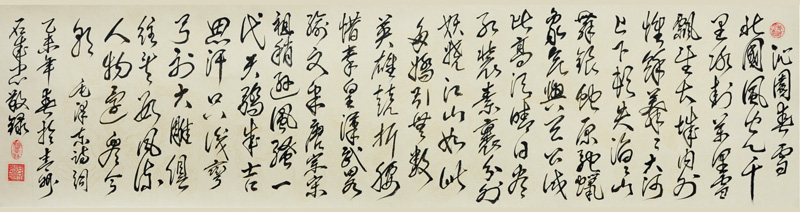 沁園春雪
北國風光千
里冰封萬里雪
飄望長城内外
惟餘莽莽大河
上下頓失滔滔山
舞銀蛇原馳蠟
象欲與天公試
比高須晴日看
紅裝素裹分外
妖嬈江山如此
多嬌引無數
英雄競折腰
惜秦皇漢武略
輸文采唐宗宋
祖稍遜風騷一
代天驕成吉
思汗只識彎
弓射大雕俱
往矣數風流
人物還看今
朝 毛澤東詩詞
乙未年春於
敬錄